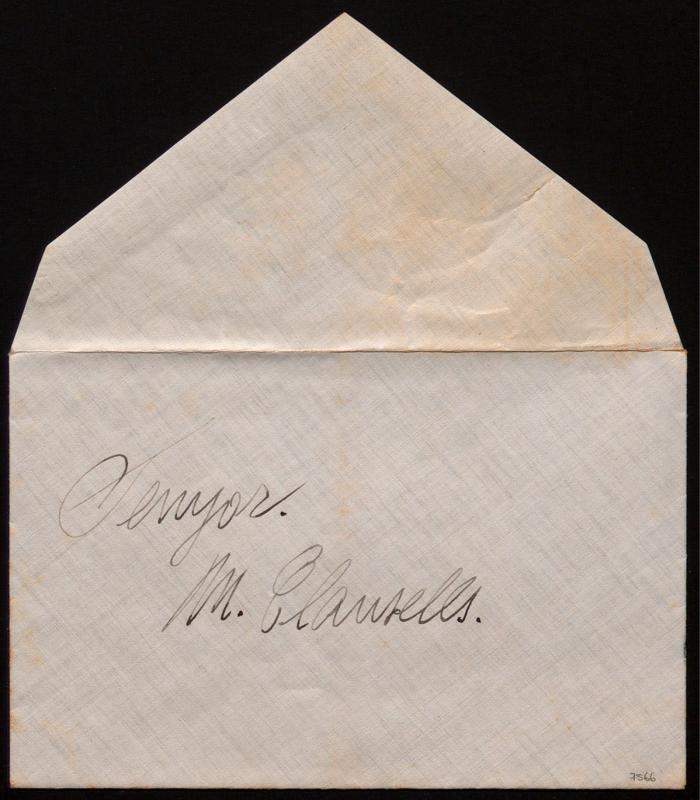 Senyor.
M. Clausells.
7566